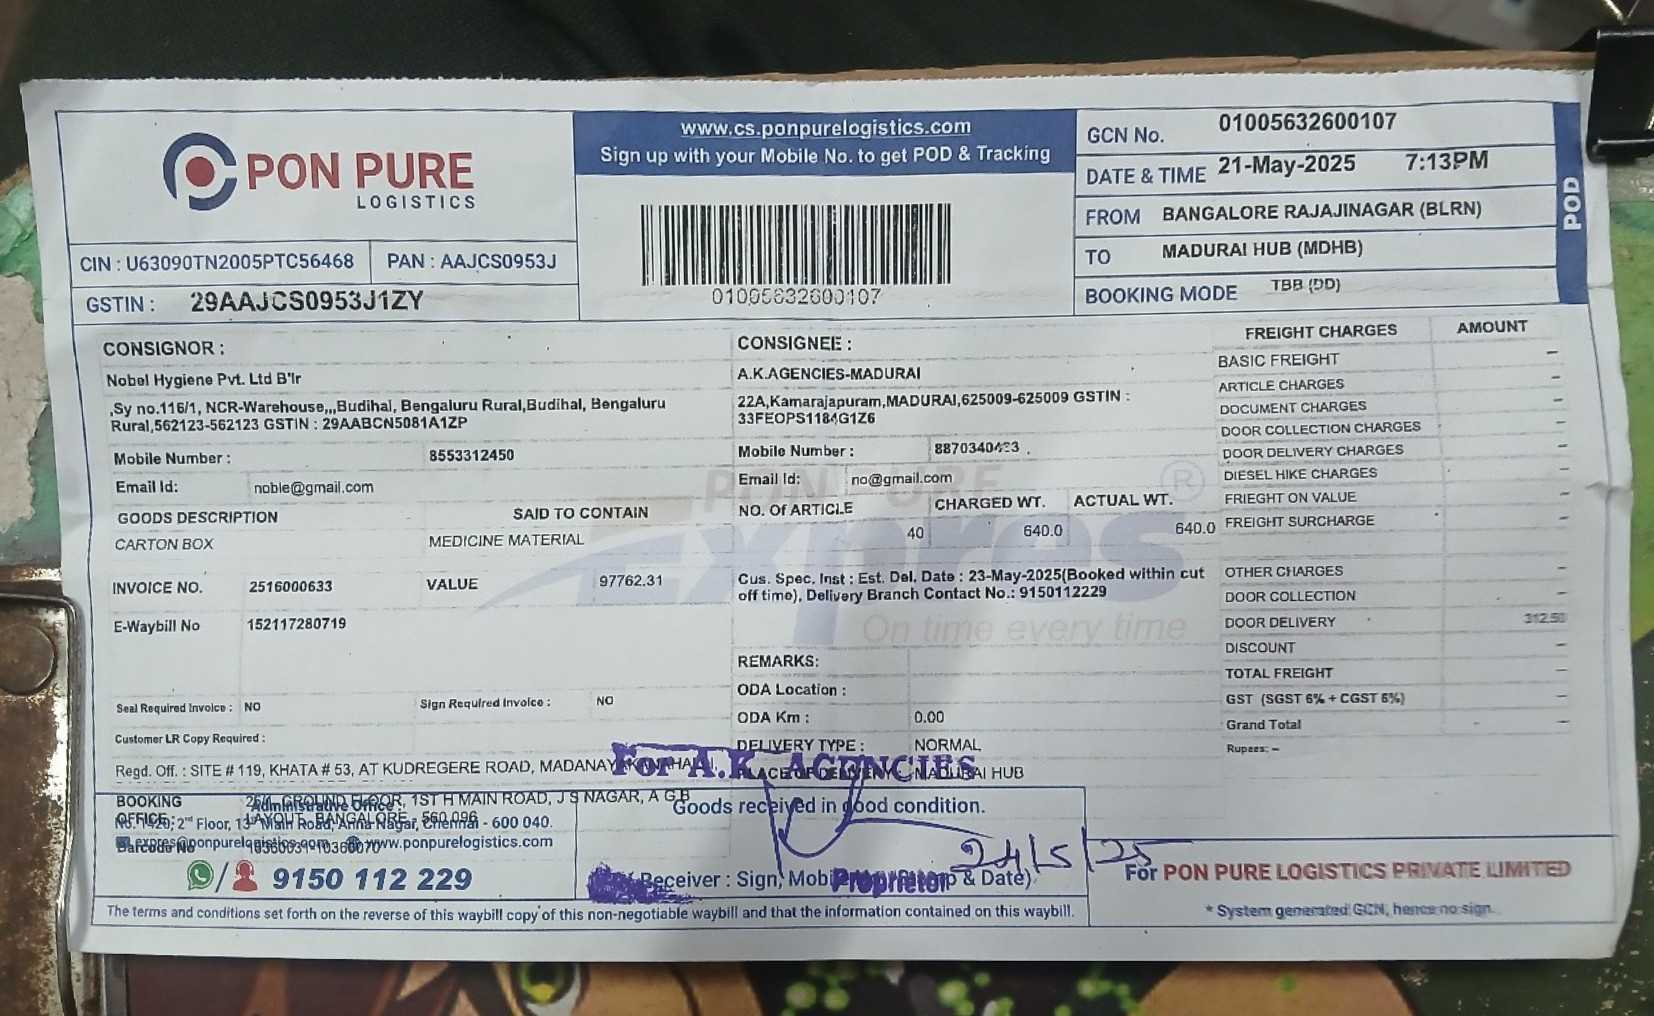 PON PURE
LOGISTICS
www.cs.ponpurelogistics.com
Sign up with your Mobile No. to get POD & Tracking
01005632600107
GCN No. 01005632600107
DATE & TIME 21-May-2025 7:13PM
FROM BANGALORE RAJAJINAGAR (BLRN)
TO MADURAI HUB (MDHB)
BOOKING MODE TBB (DD)
POD
CIN : U63090TN2005PTC56468 PAN : AAJCS0953J
GSTIN : 29AAJCS0953J1ZY
CONSIGNOR :
Nobel Hygiene Pvt. Ltd B'lr
,Sy no.116/1, NCR-Warehouse,,,Budihal, Bengaluru Rural,Budihal, Bengaluru
Rural,562123-562123 GSTIN : 29AABCN5081A1ZP
Mobile Number : 8553312450
Email Id: noble@gmail.com
GOODS DESCRIPTION SAID TO CONTAIN
CARTON BOX MEDICINE MATERIAL
INVOICE NO. 2516000633 VALUE 97762.31
E-Waybill No 152117280719
Seal Required Invoice : NO Sign Required Invoice : NO
Customer LR Copy Required :
Regd. Off. : SITE # 119, KHATA # 53, AT KUDREGERE ROAD,
CONSIGNEE :
A.K.AGENCIES-MADURAI
22A,Kamarajapuram,MADURAI,625009-625009 GSTIN :
33FEOPS1184G1Z6
Mobile Number :
Email Id: no@gmail.com
NO. Of ARTICLE CHARGED WT. ACTUAL WT.
40 640.0 640.0
Cus. Spec. Inst : Est. Del. Date : 23-May-2025(Booked within cut
off time), Delivery Branch Contact No.: 9150112229
PON PURE
Expres
®
On time every time
REMARKS:
ODA Location :
ODA Km : 0.00
DELIVERY TYPE : NORMAL
PLACE OF DELIVERY : MADURAI HUB
FREIGHT CHARGES AMOUNT
BASIC FREIGHT –
ARTICLE CHARGES –
DOCUMENT CHARGES –
DOOR COLLECTION CHARGES –
DOOR DELIVERY CHARGES –
DIESEL HIKE CHARGES –
FRIEGHT ON VALUE –
FREIGHT SURCHARGE –
OTHER CHARGES –
DOOR COLLECTION –
DOOR DELIVERY 312.50
DISCOUNT –
TOTAL FREIGHT –
GST (SGST 6% + CGST 6%) –
Grand Total –
Rupees: –
For A.K. AGENCIES
BOOKING OFFICE: 1ST H MAIN ROAD, J S NAGAR, A G B
LAYOUT, BANGALORE - 560 096
Administrative Office :
2nd Floor, 13th Main Road, Anna Nagar, Chennai - 600 040.
Barcode No
www.ponpurelogistics.com
9150 112 229
Goods received in good condition.
24/5/25
Receiver : Sign, & Date)
Proprietor
For PON PURE LOGISTICS PRIVATE LIMITED
* System generated GCN, hence no sign.
The terms and conditions set forth on the reverse of this waybill copy of this non-negotiable waybill and that the information contained on this waybill.